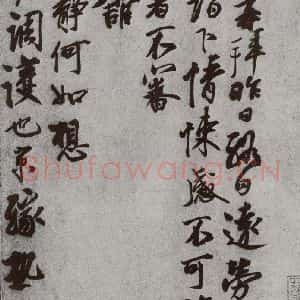 拜昨日遠勞
下情悚感不可
者不審
靜何如想
調護也緣
Shufawang.CN